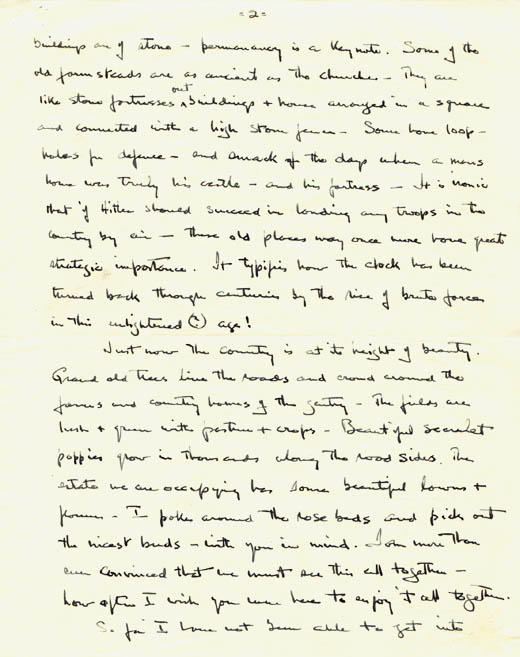 - 2 -
buildings are of stone - permanancy is a Keynote. Some of the
old farmsteads are as ancient as the churches - They are
like stone fortresses out buildings + house arranged in a square
and connected with a high stone fence - Some have loop-
holes for defence - and smack of the days when a mans
home was truly his castle - and his fortress - It is ironic
that if Hitler should succeed in landing any troops in the
country by air - these old places may once more have great
strategic importance. It typifies how the clock has been
turned back through centuries by the rise of brute forces
in this enlightened (?) age!
Just now the country is at its height of beauty.
Grand old trees line the roads and crowd around the
farms and country homes of the gentry - The fields are
lush + green with pasture + crops - Beautiful scarlet
poppies grow in thousands along the road sides. The
estate we are occupying has some beautiful lawns +
flowers - I poke around the rose beds and pick out
the nicest buds - with you in mind. I am more than
ever convinced that we must see this all together -
how often I wish you were here to enjoy it all together.
So far I have not been able to get into